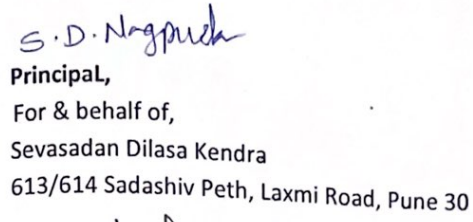 S. D. Nagpuch
PrincipaL,
For & behalf of,
Sevasadan Dilasa Kendra
613/614 Sadashiv Peth, Laxmi Road, Pune 30